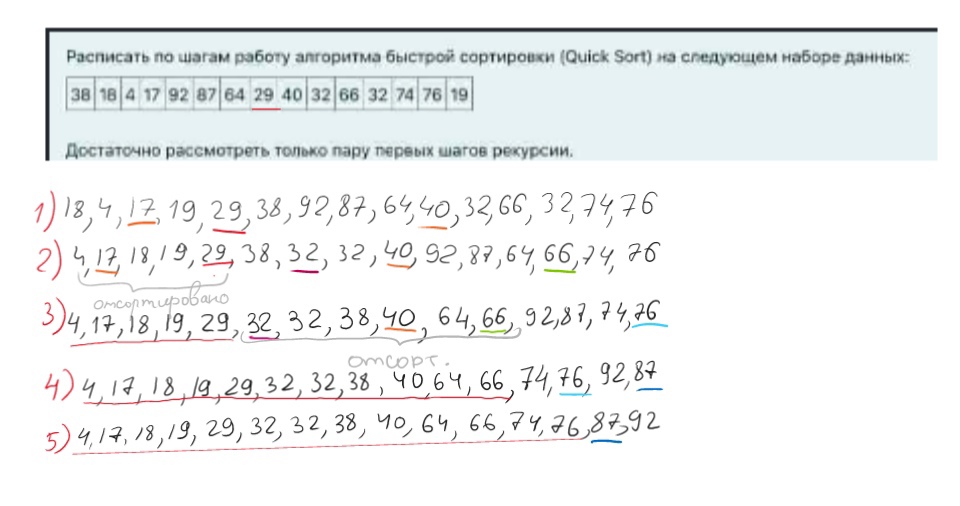 Расписать по шагам работу алгоритма быстрой сортировки (Quick Sort) на следующем наборе данных:
38 18 4 17 92 87 64 29 40 32 66 32 74 76 19
Достаточно рассмотреть только пару первых шагов рекурсии.
1) 18, 4, 17, 19, 29, 38, 92, 87, 64, 40, 32, 66, 32, 74, 76
2) 4, 17, 18, 19, 29, 38, 32, 32, 40, 92, 87, 64, 66, 74, 76
отсортировано
3) 4, 17, 18, 19, 29, 32, 32, 38, 40, 64, 66, 92, 87, 74, 76
отсорт.
4) 4, 17, 18, 19, 29, 32, 32, 38, 40, 64, 66, 74, 76, 92, 87
5) 4, 17, 18, 19, 29, 32, 32, 38, 40, 64, 66, 74, 76, 87, 92